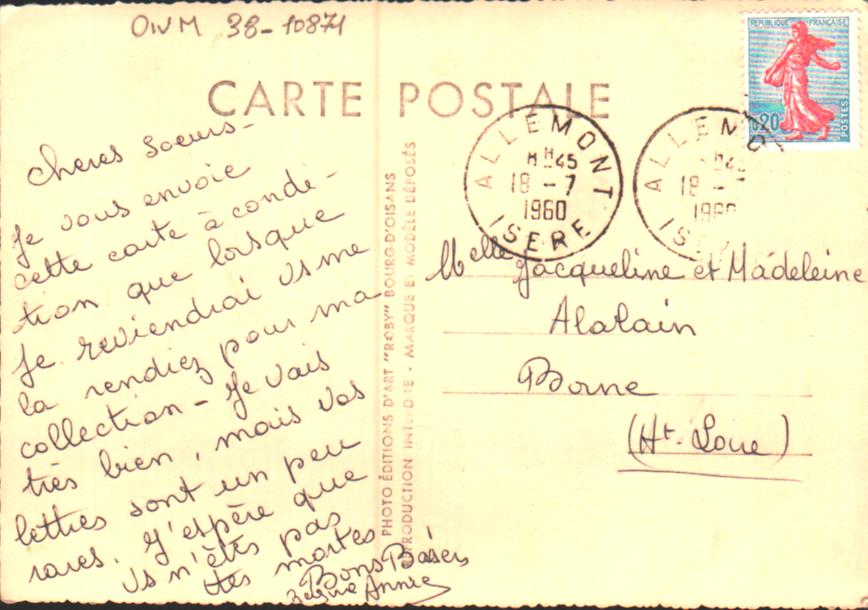 OIVM 38-10871
CARTE POSTALE
REPUBLIQUE FRANÇAISE
0,20
POSTES
ALLEMONT
H 45
18 - 7
1960
ISERE
ALLEMO
18 -
196
ISE
Cheres soeurs -
Je vous envoie
cette carte à condi-
tion que lorsque
Je reviendrai vs me
la rendiez pour ma
collection - Je vais
très bien, mais vos
lettres sont un peu
rares. J'espère que
vs n'êtes pas
ttes mortes
Bons Baisers
Annie
PHOTO ÉDITIONS D'ART "ROBY" BOURG-D'OISANS
REPRODUCTION INTERDITE - MARQUE ET MODÈLE DÉPOSÉS
Melles Jacqueline et Madeleine
Borne
(Ht-Loire)